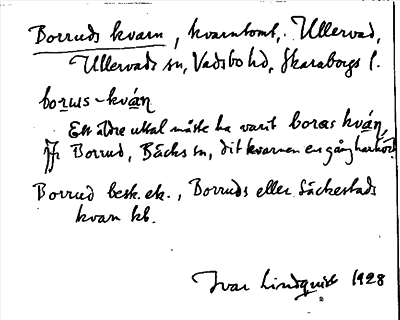 Borruds kvarn, kvarntomt, Ullervad,
Ullervads sn, Vadsbo hd, Skaraborgs l.
borus-kván
Ett äldre uttal måste ha varit boras kván,
Jfr Borrud, Bäcks sn, dit kvarnen en gång har hört.
Borrud besk. ek., Borruds eller Säckestads
kvarn kb.
Ivar Lindquist 1928